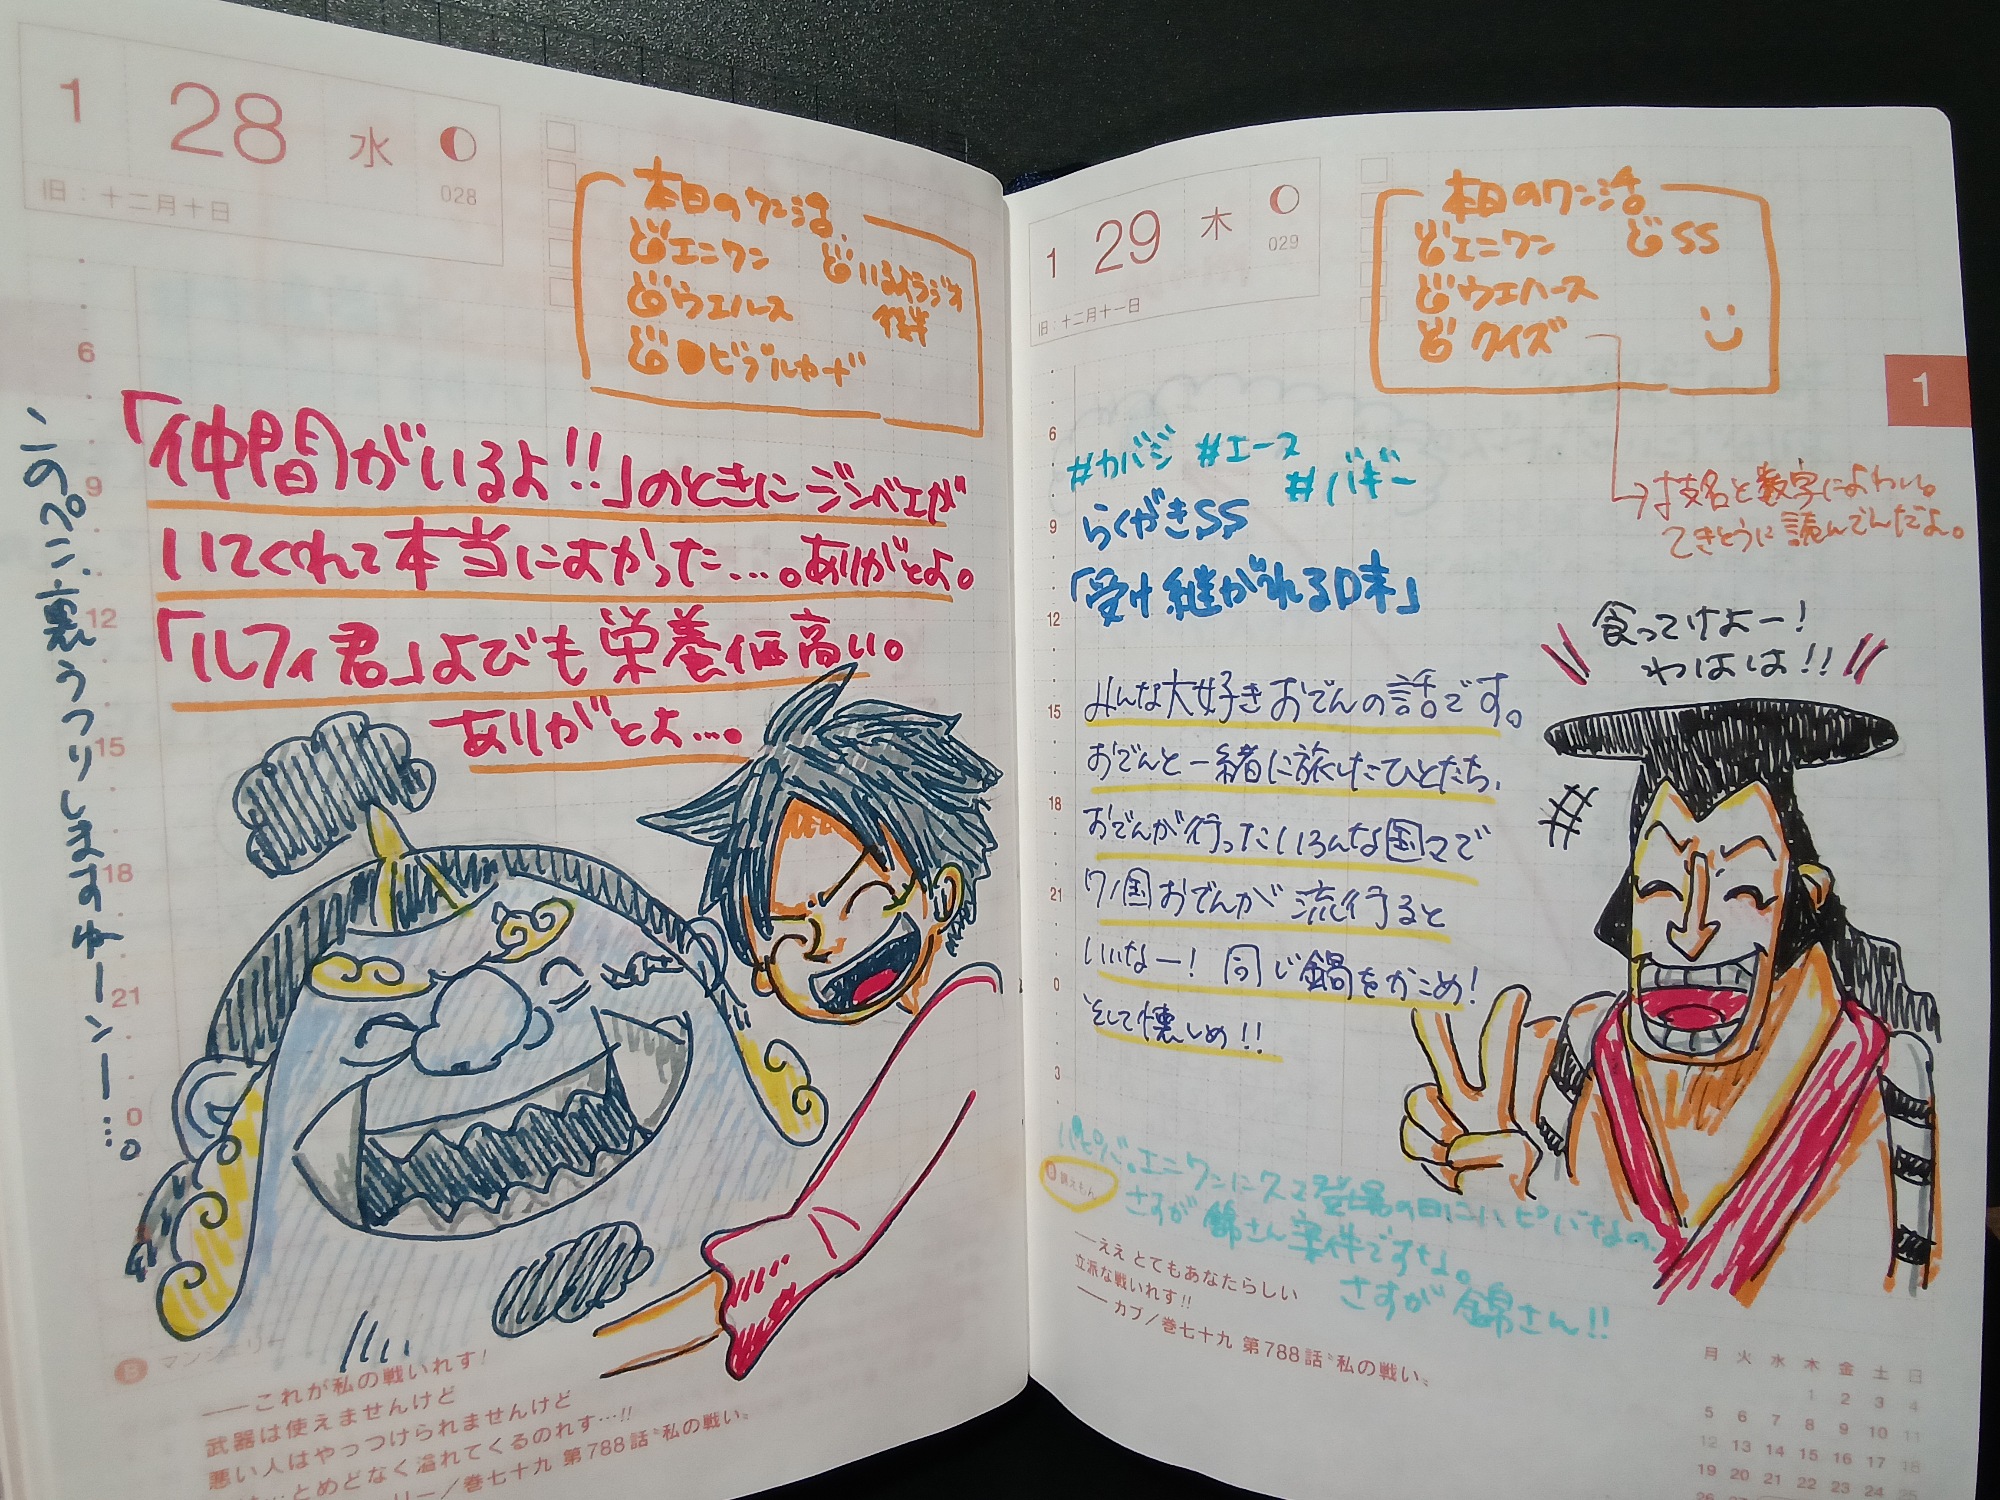 1 28 水
028
旧：十二月十日
本日のワン活
エニワン
ウエハース
ビブルカード
後半
「仲間がいるよ!!」のときにジンベエが
いてくれて本当によかった…。ありがとよ。
「ルフィ君」よびも栄養価高い。
ありがとよ…。
このペン、裏うつりしますねーンー…。
6
9
12
15
18
21
0
マンシェリー
——これが私の戦いれす!
武器は使えませんけど
悪い人はやっつけられませんけど
…とめどなく溢れてくるのれす…!!
リー／巻七十九 第788話“私の戦い”
1 29 木
029
旧：十二月十一日
本日のワン活
エニワン
SS
ウエハース
クイズ
1
→技名と数字によわい。
てきとうに読んでんだよ。
#カバジ #エース
#バギー
らくがきSS
「受け継がれる口味」
食ってけよー!
わはは!!
みんな大好きおでんの話です。
おでんと一緒に旅したひとたち、
おでんが行ったいろんな国々で
ワノ国おでんが流行ると
いいなー! 同じ鍋をかこめ!
そして懐しめ!!
6
9
12
15
18
21
0
3
ハピバ。エニワンにスマ登場の日にハピバなの。
さすが錦さん案件ですな。
さすが錦さん!!
錦えもん
——ええ とてもあなたらしい
立派な戦いれす!!
—— カブ／巻七十九 第788話“私の戦い”
月 火 水 木 金 土 日
1 2 3 4
5 6 7 8 9 10 11
12 13 14 15 16 17 18
19 20 21 22 23 24 25